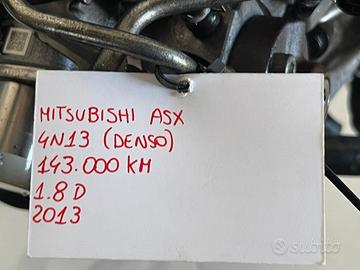 MITSUBISHI ASX
4N13 (DENSO)
143.000 KM
1.8 D
2013
subito